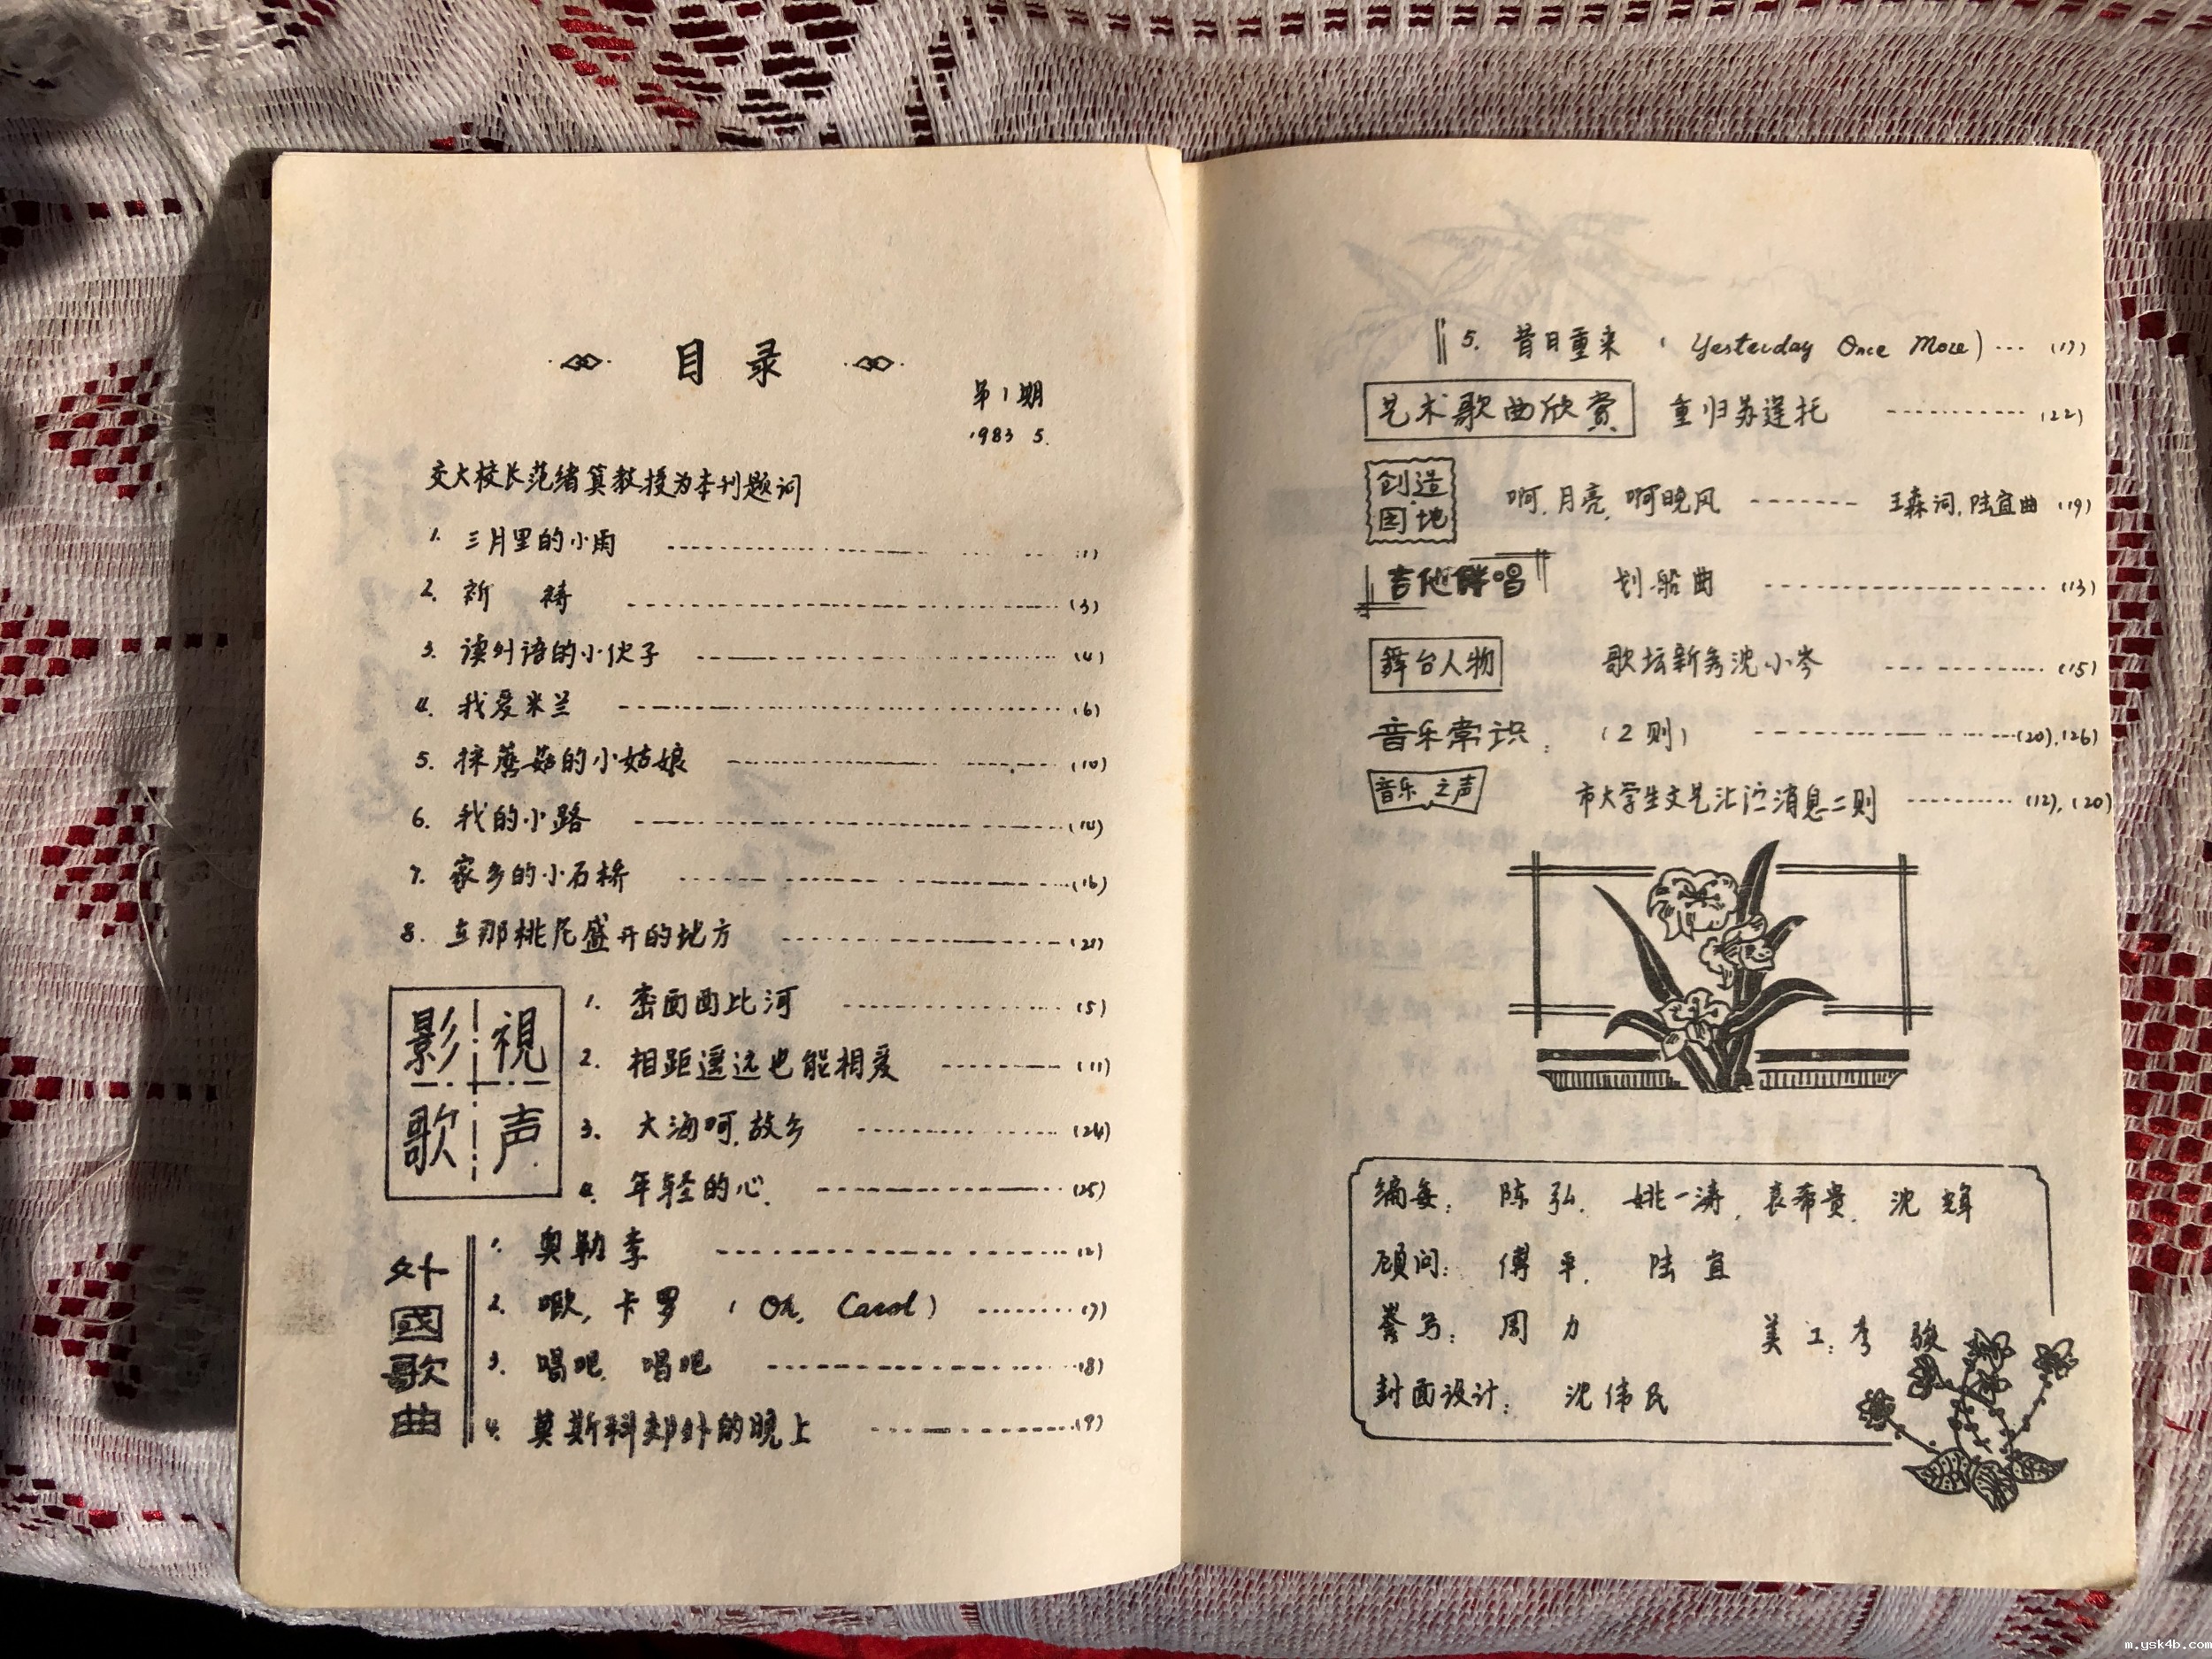 目录
第1期
1983 5.
交大校长范绪箕教授为本刊题词
1. 三月里的小雨 (1)
2. 祈祷 (3)
3. 读外语的小伙子 (4)
4. 我爱米兰 (6)
5. 採蘑菇的小姑娘 (10)
6. 我的小路 (14)
7. 家乡的小石桥 (16)
8. 在那桃花盛开的地方 (21)
影視歌声
1. 密西西比河 (5)
2. 相距遥远也能相爱 (11)
3. 大海呵,故乡 (24)
4. 年轻的心. (25)
外國歌曲
1. 奥勒李 (2)
2. 噢,卡罗 (Oh, Carol) (7)
3. 唱吧 唱吧 (8)
4. 莫斯科郊外的晚上 (9)
5. 昔日重来 (Yesterday Once More) (17)
艺术歌曲欣赏 重归苏莲托 (22)
创造园地 啊,月亮,啊晚风 王森词,陆宜曲 (19)
吉他伴唱 划船曲 (13)
舞台人物 歌坛新秀沈小岑 (15)
音乐常识: (2则) (20),(26)
音乐之声 市大学生文艺汇演消息二则 (12),(20)
编委: 陈弘, 姚一涛, 袁希贵, 沈辉
顾问: 傅平, 陆宜
誊写: 周力 美工: 李骏
封面设计: 沈伟民
m.ysk4b.com